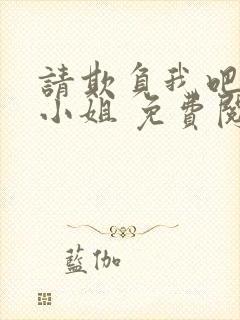 請欺負我吧
小姐 免費閱
藍伽